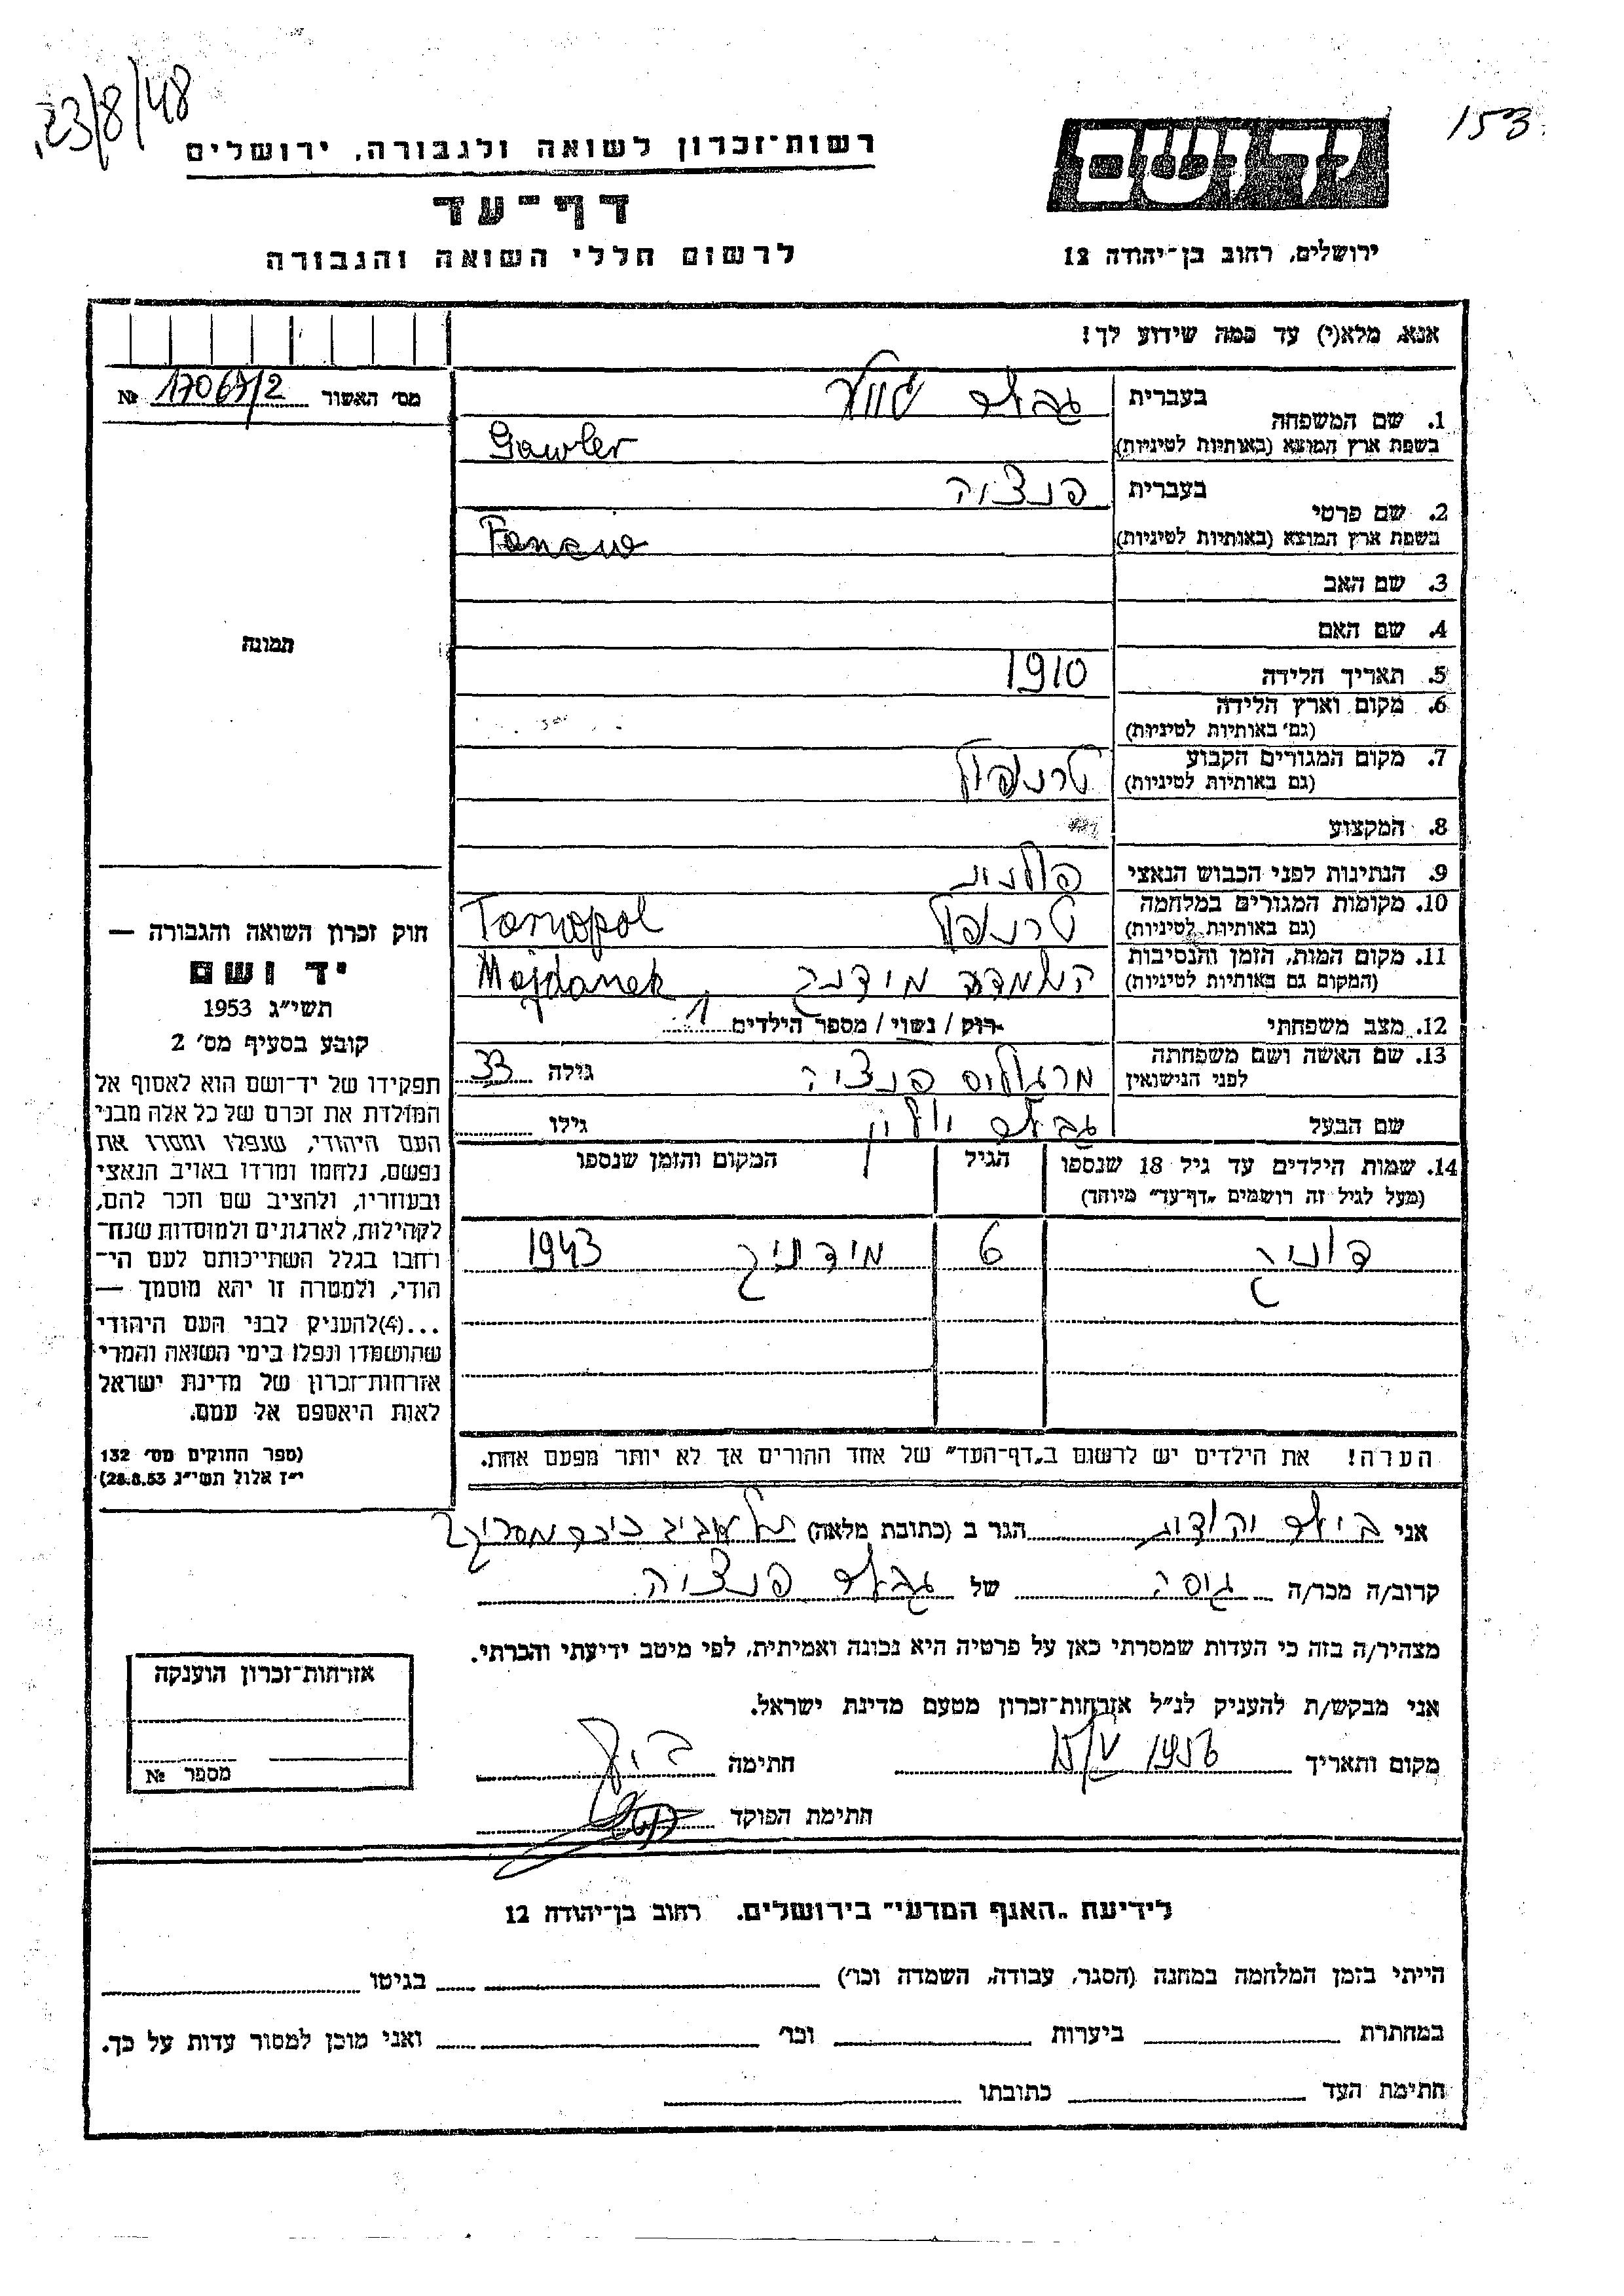 23/8/48
153
רשות־זכרון לשואה ולגבורה, ירושלים
יד ושם
דף־עד
לרשום חללי השואה והגבורה
ירושלים, רחוב בן־יהודה 12
אנא, מלא(י) עד כמה שידוע לך!
מס' האשור 17067/2 №
1. שם המשפחה
בעברית
בשפת ארץ המוצא (באותיות לטיניות) Gawler
2. שם פרטי
בעברית פנציה
בשפת ארץ המוצא (באותיות לטיניות)
3. שם האב
4. שם האם
5. תאריך הלידה 1910
6. מקום וארץ הלידה
(גם באותיות לטיניות)
7. מקום המגורים הקבוע טרנופול
(גם באותיות לטיניות)
8. המקצוע
9. הנתינות לפני הכבוש הנאצי פולנית
10. מקומות המגורים במלחמה טרנופול Tarnopol
(גם באותיות לטיניות)
11. מקום המות, הזמן והנסיבות השמדה מידנק Majdanek
(המקום גם באותיות לטיניות)
12. מצב משפחתי רווק / נשוי / מספר הילדים 1
13. שם האשה ושם משפחתה
לפני הנישואין מרגוליס פנציה גילה 33
שם הבעל גילו
14. שמות הילדים עד גיל 18 שנספו הגיל המקום והזמן שנספו
(מעל לגיל זה רושמים „דף־עד" מיוחד)
6 מידנק 1943
הערה! את הילדים יש לרשום ב„דף־העד" של אחד ההורים אך לא יותר מפעם אחת.
תמונה
חוק זכרון השואה והגבורה —
יד ושם
תשי"ג 1953
קובע בסעיף מס' 2
תפקידו של יד־ושם הוא לאסוף אל
המולדת את זכרם של כל אלה מבני
העם היהודי, שנפלו ומסרו את
נפשם, נלחמו ומרדו באויב הנאצי
ובעוזריו, ולהציב שם וזכר להם,
לקהילות, לארגונים ולמוסדות שנח־
רחבו בגלל השתייכותם לעם הי־
הודי, ולמטרה זו יהא מוסמך —
...(4)להעניק לבני העם היהודי
שהושמדו ונפלו בימי השואה והמרי
אזרחות־זכרון של מדינת ישראל
לאות היאספם אל עמם.
(ספר החוקים מס' 132
י"ז אלול תשי"ג 28.8.53)
אני הגר ב (כתובת מלאה) תל אביב כיכר מסריק
קרוב/ה מכר/ה גיסה של פנציה
מצהיר/ה בזה כי העדות שמסרתי כאן על פרטיה היא נכונה ואמיתית, לפי מיטב ידיעתי והכרתי.
אני מבקש/ת להעניק לנ"ל אזרחות־זכרון מטעם מדינת ישראל.
מקום ותאריך 15/V 1956 חתימה
חתימת הפוקד
אזרחות־זכרון הוענקה
מספר №
לידיעת „האגף המדעי" בירושלים. רחוב בן־יהודה 12
הייתי בזמן המלחמה במחנה (הסגר, עבודה, השמדה וכו') בגיטו
במחתרת ביערות וכו' ואני מוכן למסור עדות על כך.
חתימת העד כתובתו